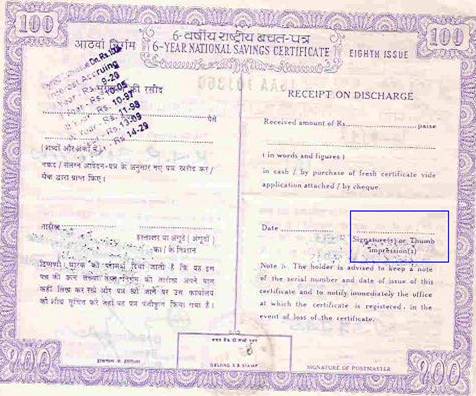 100
100
6-वर्षीय राष्ट्रीय बचत-पत्र
आठवां निर्गम
6-YEAR NATIONAL SAVINGS CERTIFICATE
EIGHTH ISSUE
की रसीद
RECEIPT ON DISCHARGE
Accruing
9-20
10-05
10-97
11-98
Rs. 13-09
Rs. 14-29
पैसे
Received amount of Rs. paise
(शब्दों और अंकों में)
( in words and figures )
नकद / संलग्न आवेदन-पत्र के अनुसार नए पत्र खरीद कर /
चैक द्वारा प्राप्त किए।
in cash / by purchase of fresh certificate vide
application attached / by cheque.
तारीख
हस्ताक्षर या अंगूठे (अंगूठों)
का / के निशान
Date
Signature(s) or Thumb
impression(s)
टिप्पणी: धारक को परामर्श दिया जाता है कि वह इस
पत्र की क्रम संख्या तथा निर्गम की तारीख अपने पास
कहीं लिख कर रखे और पत्र खो जाने पर उस कार्यालय
को शीघ्र सूचित करे जहाँ यह पत्र पंजीकृत किया गया है।
Note :- The holder is advised to keep a note
of the serial number and date of issue of this
certificate and to notify immediately the office
at which the certificate is registered, in the
event of loss of the certificate.
100
100
SIGNATURE OF POSTMASTER